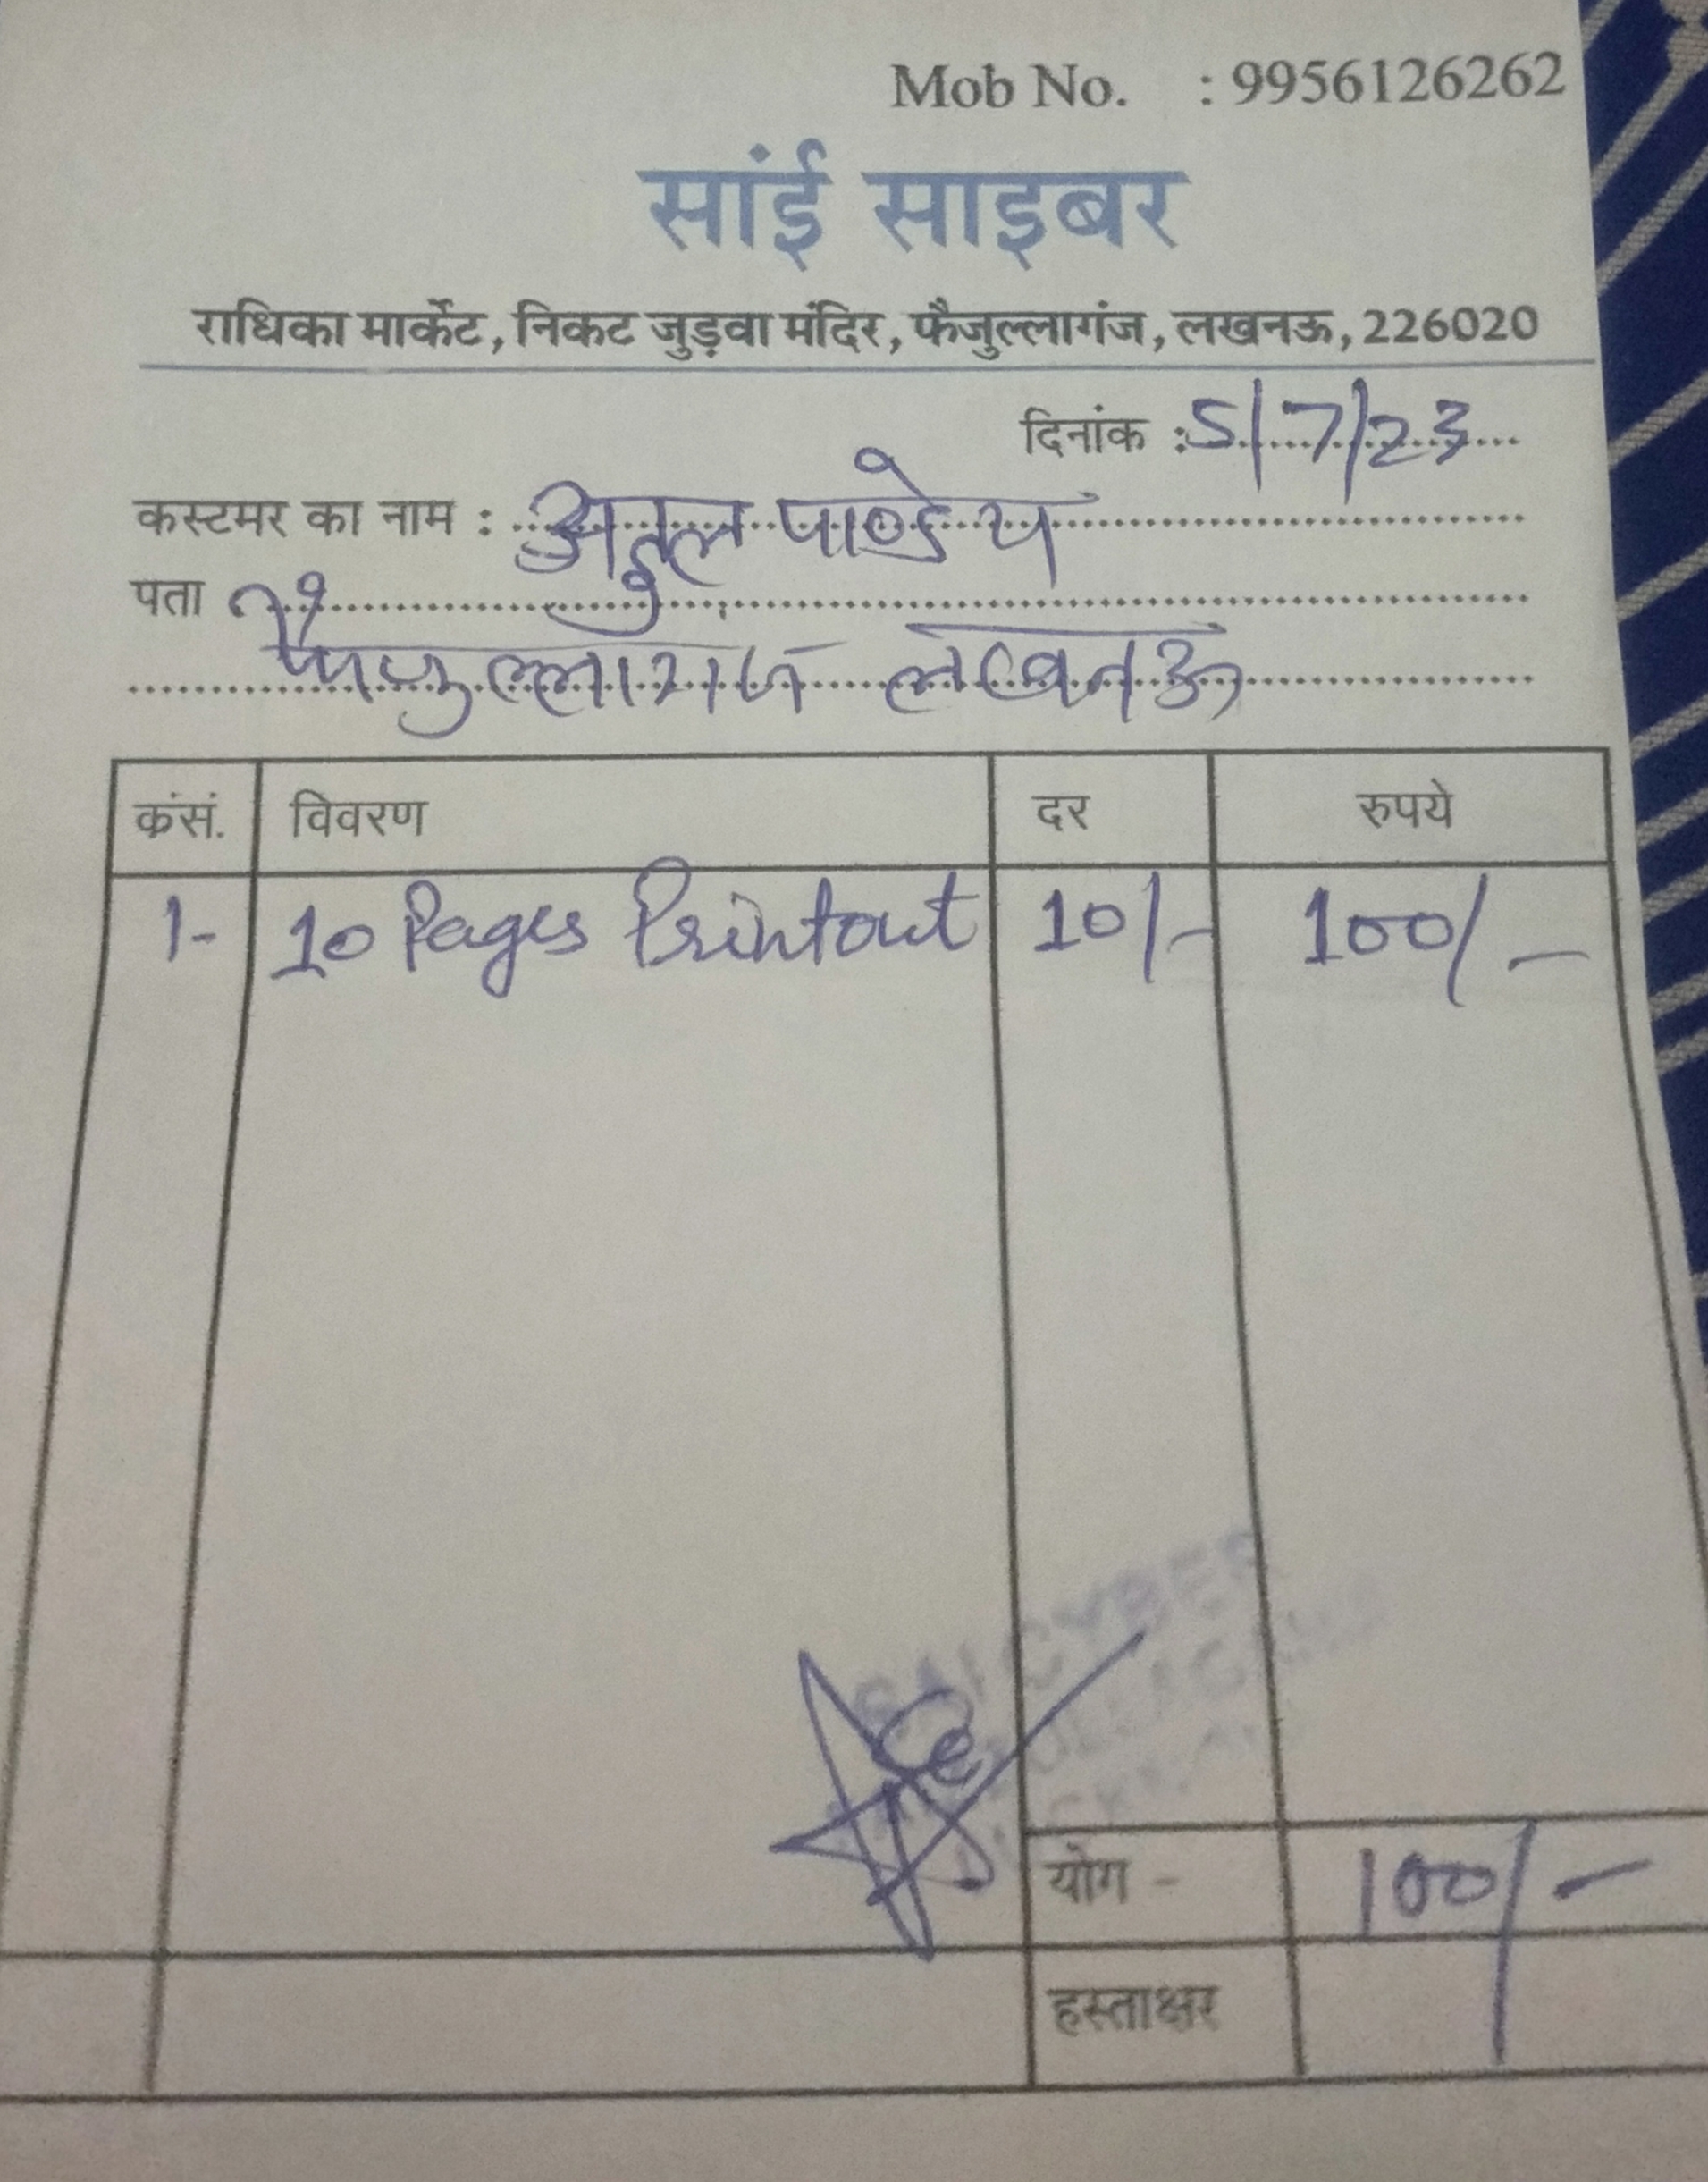 Mob No. : 9956126262
सांई साइबर
राधिका मार्केट, निकट जुड़वा मंदिर, फैजुल्लागंज, लखनऊ, 226020
दिनांक : 5/7/23
कस्टमर का नाम : अतुल पाण्डेय
पता
फैजुल्लागंज लखनऊ
कंसं. विवरण दर रुपये
1- 10 Pages Printout 10/- 100/-
SAI CYBER
योग - 100/-
हस्ताक्षर